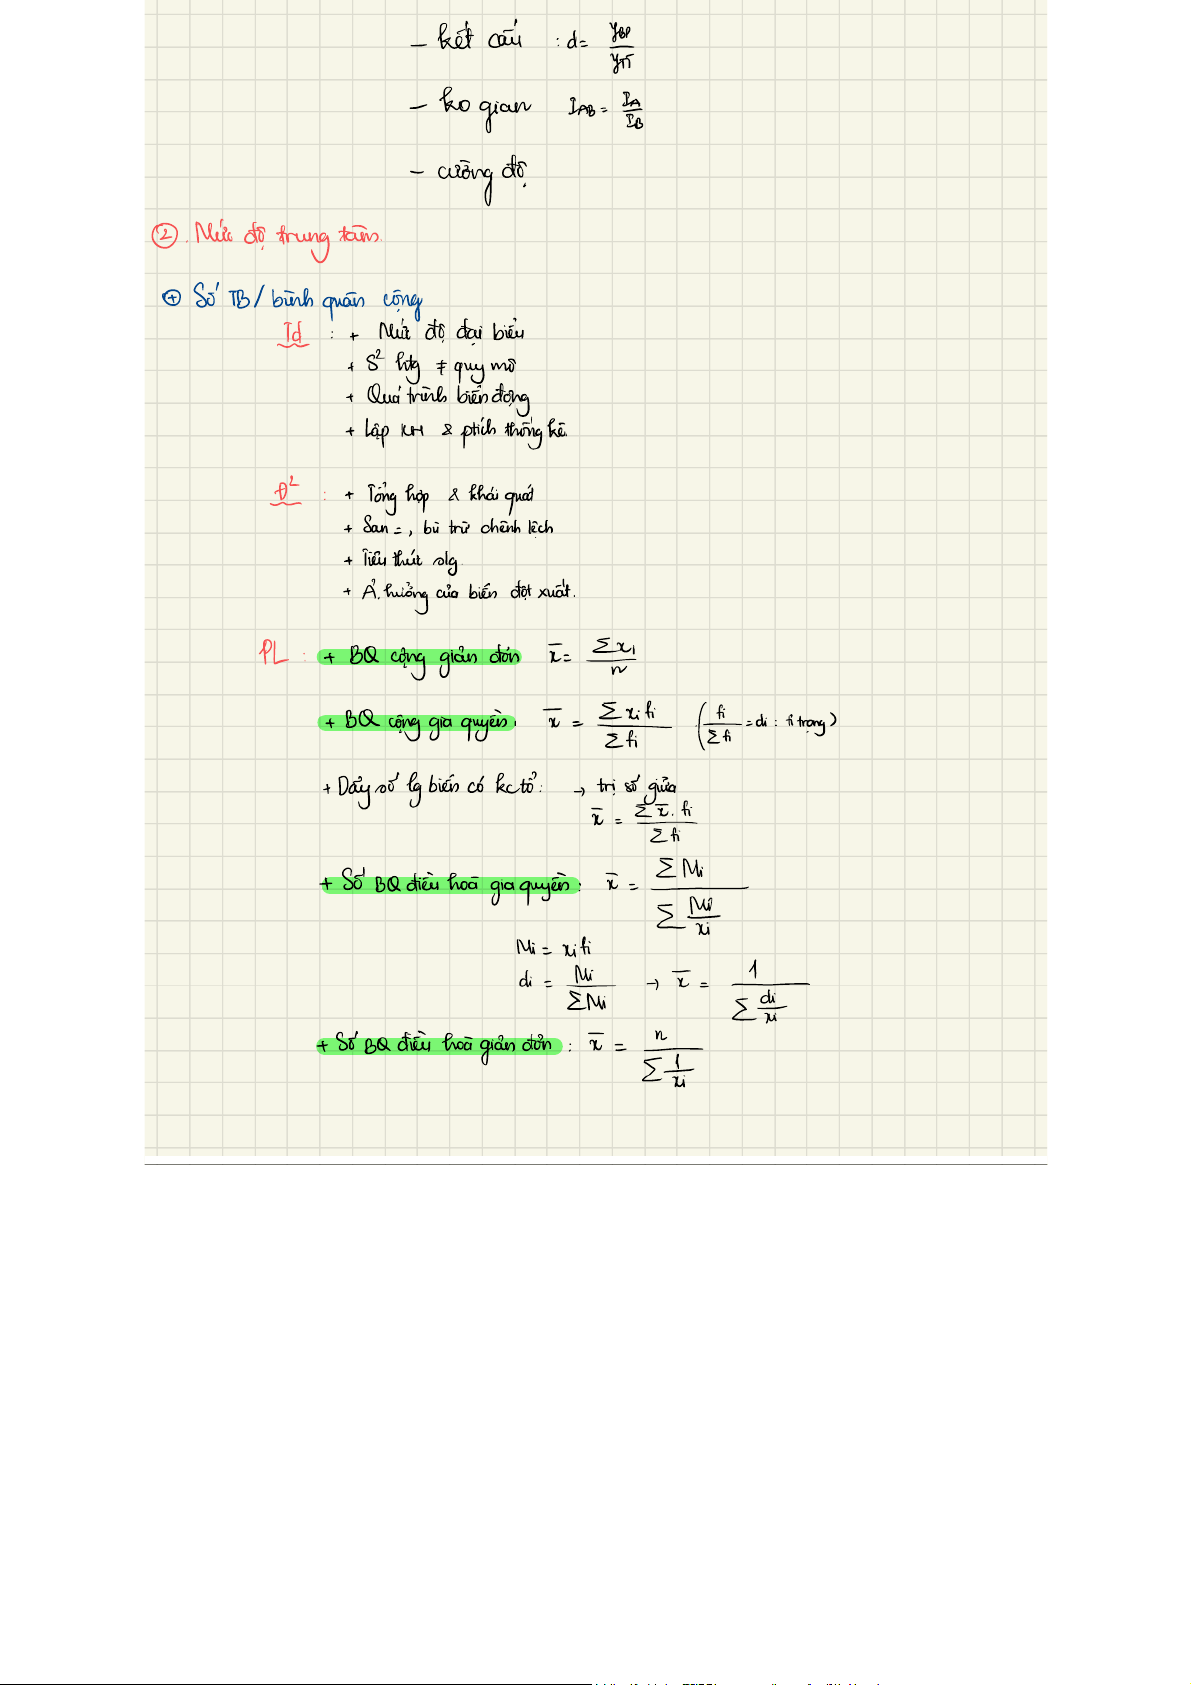 - kết cấu : d = y_BP / y_TT
- ko gian I_AB = I_A / I_B
- cường độ
②. Mức độ trung tâm.
⊕ Số TB / bình quân cộng
Td : + Mức độ đại biểu
+ S² htg ≠ quy mô
+ Quá trình biến động
+ Lập KH & ptích thống kê.
Đ² : + Tổng hợp & khái quát
+ San =, bù trừ chênh lệch
+ Tiêu thức slg
+ Ả. hưởng của biến đột xuất.
PL : + BQ cộng giản đơn x̄ = Σxi / n
+ BQ cộng gia quyền : x̄ = Σxifi / Σfi (fi / Σfi = di : tỉ trọng)
+ Dãy số lg biến có kc tổ : → trị số giữa
x̄ = Σx̄.fi / Σfi
+ Số BQ điều hoà gia quyền : x̄ = ΣMi / Σ(Mi / xi)
Mi = xifi
di = Mi / ΣMi → x̄ = 1 / Σ(di / xi)
+ Số BQ điều hoà giản đơn : x̄ = n / Σ(1 / xi)